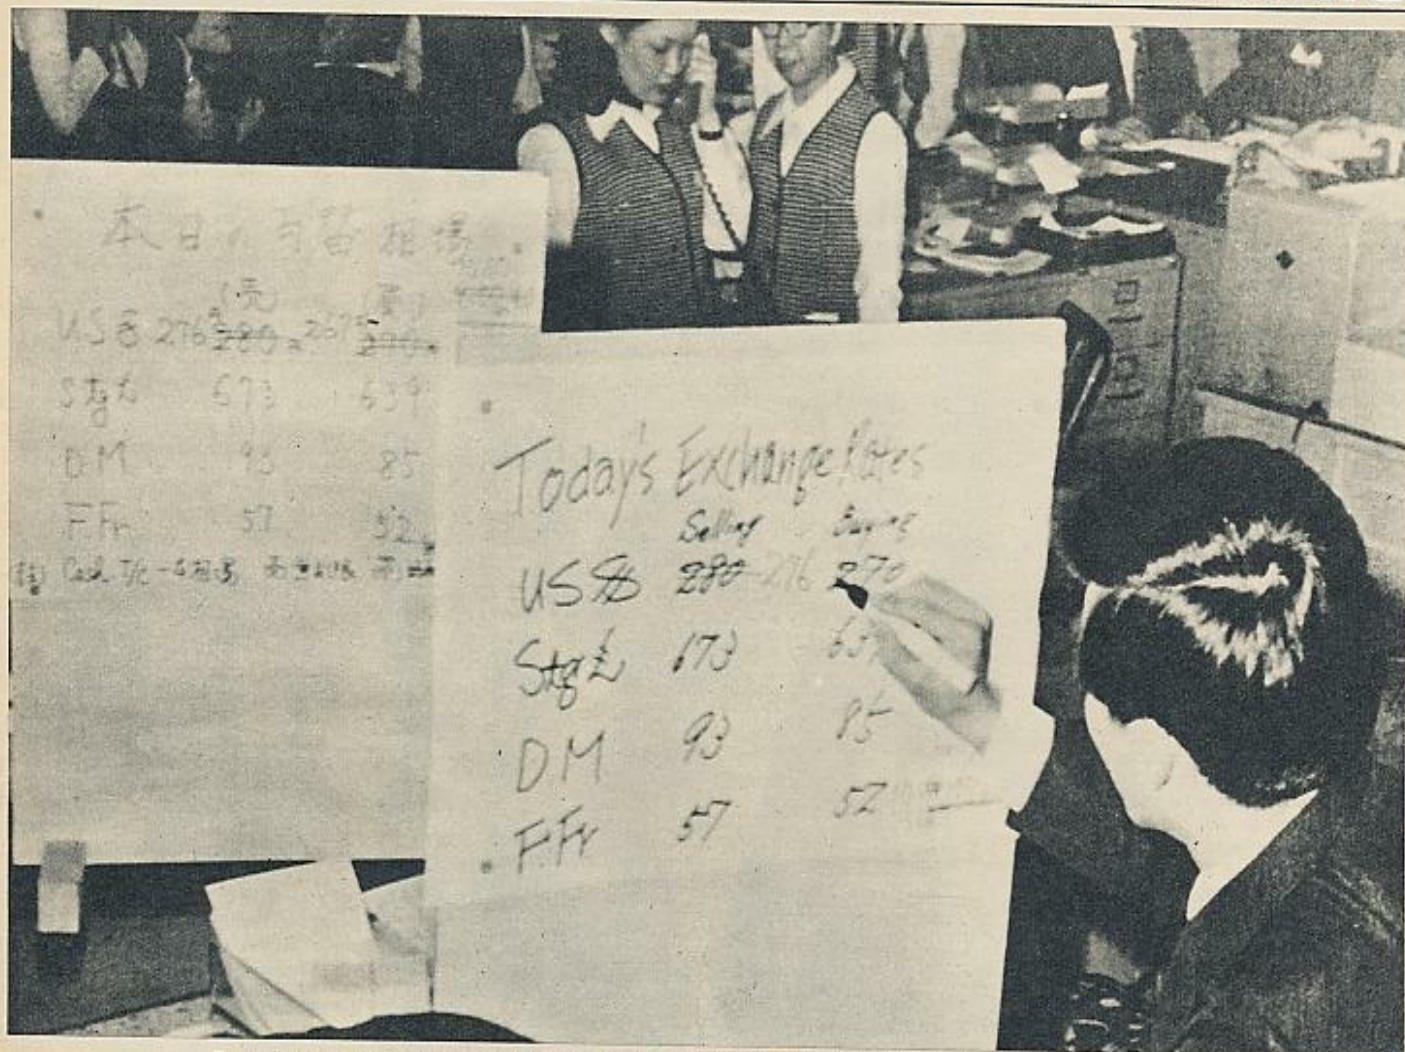 本日の為替相場
売 買
US$ 276 280 267 270
Stg£ 673 639
DM 93 85
FFr 57 52
Cash T/C
Today's Exchange Rates
Selling Buying
US$ 280 276 270
Stg£ 673 63
DM 93 85
F.Fr 57 52